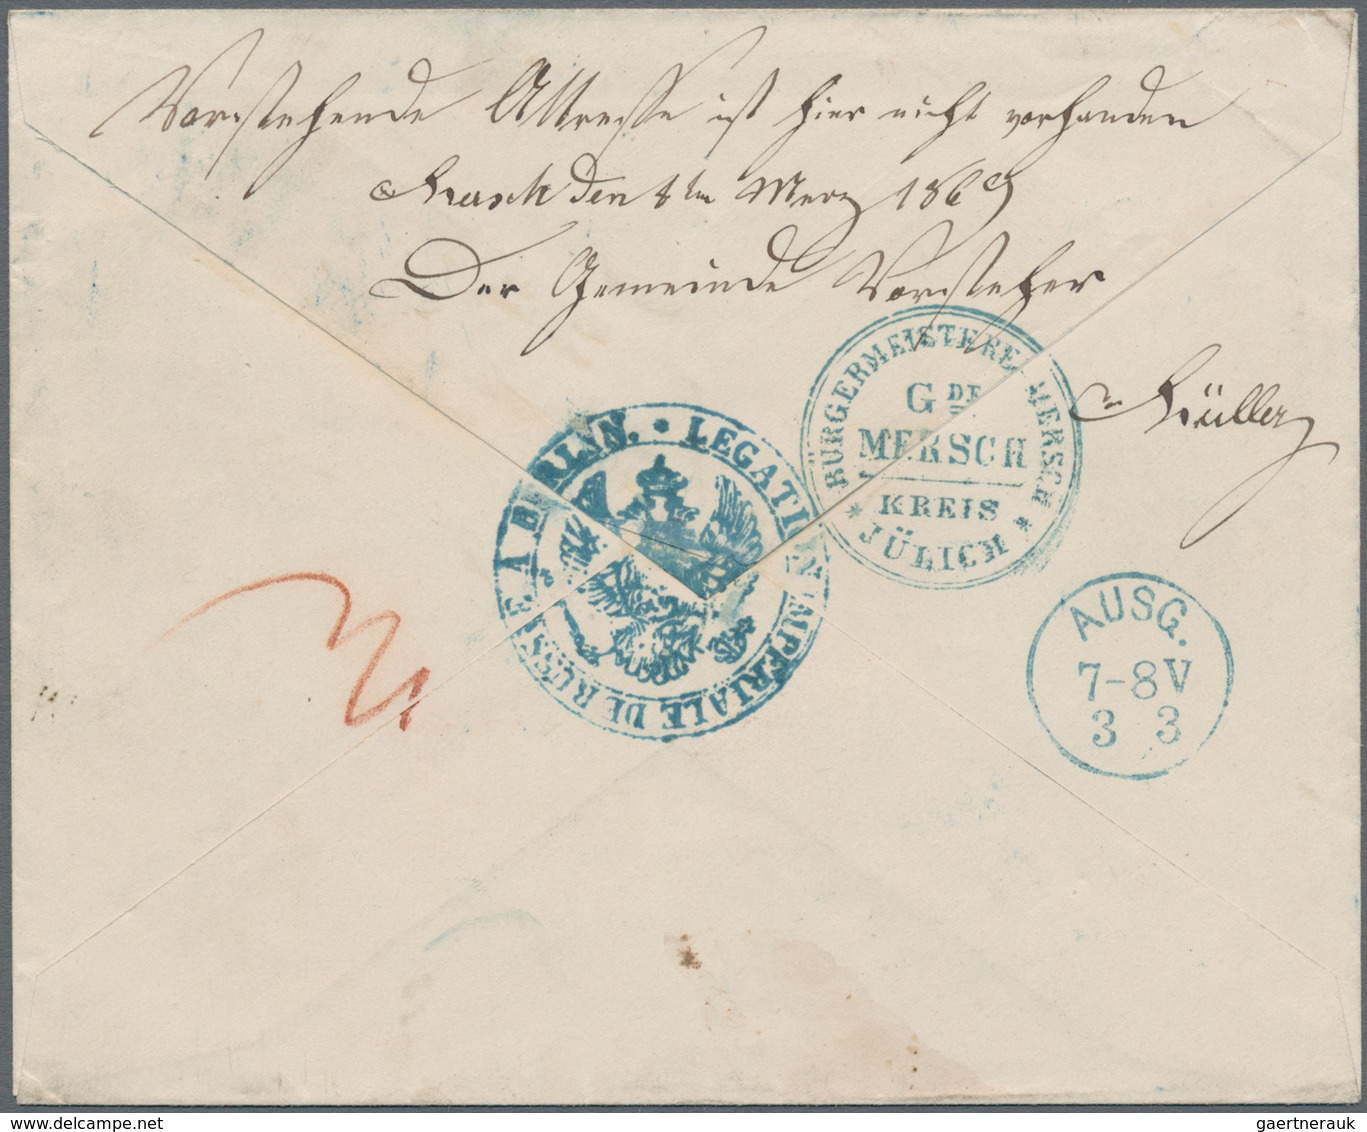 Vorstehende Attresse ist hier nicht vorhanden
Mersch den 4ten Merz 1869
Der Gemeinde Vorsteher
Müller
BÜRGERMEISTEREI MERSCH
GDE
MERSCH
KREIS
* JÜLICH *
* LEGATION IMPERIALE DE RUSSIE A BERLIN.
AUSG.
7-8V
3 3
gaertnerauk @ delcampe.net